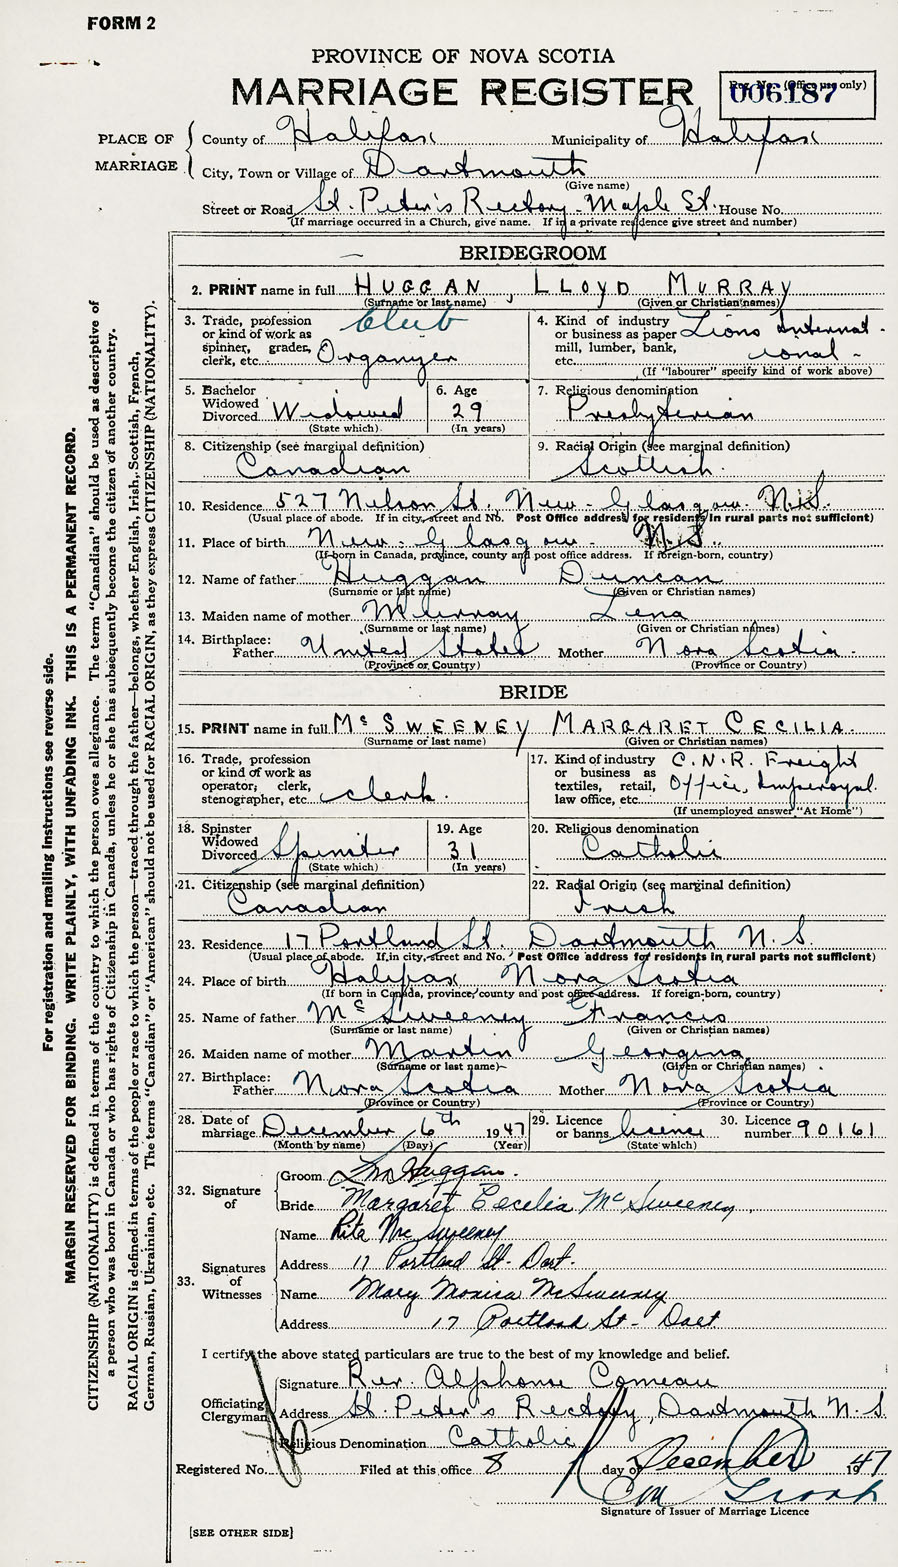 FORM 2
PROVINCE OF NOVA SCOTIA
MARRIAGE REGISTER
Reg. No. (Office use only)
006187
PLACE OF MARRIAGE
County of Halifax Municipality of Halifax
City, Town or Village of Dartmouth
(Give name)
Street or Road St. Peter's Rectory - Maple St. House No.
(If marriage occurred in a Church, give name. If in a private residence give street and number)
BRIDEGROOM
2. PRINT name in full HUGGAN, LLOYD MURRAY
(Surname or last name) (Given or Christian names)
3. Trade, profession or kind of work as spinner, grader, clerk, etc. Club Organyer
4. Kind of industry or business as paper mill, lumber, bank, etc. Lions International -
(If "labourer" specify kind of work above)
5. Bachelor Widowed Divorced Widowed
(State which)
6. Age 29
(In years)
7. Religious denomination Presbyterian
8. Citizenship (see marginal definition) Canadian
9. Racial Origin (see marginal definition) Scottish.
10. Residence 527 Nelson St. New - Glasgow. N.S.
(Usual place of abode. If in city, street and No. Post Office address for residents in rural parts not sufficient)
11. Place of birth New - Glasgow - N.S.
(If born in Canada, province, county and post office address. If foreign-born, country)
12. Name of father Huggan Duncan
(Surname or last name) (Given or Christian names)
13. Maiden name of mother Murray Lena
(Surname or last name) (Given or Christian names)
14. Birthplace: Father United States Mother Nova Scotia.
(Province or Country) (Province or Country)
BRIDE
15. PRINT name in full McSWEENEY MARGARET CECILIA.
(Surname or last name) (Given or Christian names)
16. Trade, profession or kind of work as operator; clerk, stenographer, etc. clerk.
17. Kind of industry or business as textiles, retail, law office, etc. C.N.R. Freight Office, Imperoyal.
(If unemployed answer "At Home")
18. Spinster Widowed Divorced Spinster
(State which)
19. Age 31
(In years)
20. Religious denomination Catholic
21. Citizenship (see marginal definition) Canadian
22. Racial Origin (see marginal definition) Irish
23. Residence 17 Portland St. Dartmouth N.S.
(Usual place of abode. If in city, street and No. Post Office address for residents in rural parts not sufficient)
24. Place of birth Halifax Nova Scotia
(If born in Canada, province, county and post office address. If foreign-born, country)
25. Name of father McSweeney Francis
(Surname or last name) (Given or Christian names)
26. Maiden name of mother Martin Georgina
(Surname or last name) (Given or Christian names)
27. Birthplace: Father Nova Scotia Mother Nova Scotia
(Province or Country) (Province or Country)
28. Date of marriage December 6th 1947
(Month by name) (Day) (Year)
29. Licence or banns licence
(State which)
30. Licence number 90161
32. Signature of
Groom L M Huggan.
Bride Margaret Cecelia McSweeney.
33. Signatures of Witnesses
Name Rita McSweeney
Address 17 Portland St. Dart.
Name Mary Monica McSweeney
Address 17 Portland St - Dart
I certify the above stated particulars are true to the best of my knowledge and belief.
Officiating Clergyman
Signature Rev. Alphonse Comeau
Address St. Peter's Rectory, Dartmouth N.S.
Religious Denomination Catholic
Registered No. Filed at this office 8 day of December 1947
Signature of Issuer of Marriage Licence
[SEE OTHER SIDE]
For registration and mailing instructions see reverse side.
MARGIN RESERVED FOR BINDING. WRITE PLAINLY, WITH UNFADING INK. THIS IS A PERMANENT RECORD.
CITIZENSHIP (NATIONALITY) is defined in terms of the country to which the person owes allegiance. The term "Canadian" should be used as descriptive of
a person who was born in Canada or who has rights of Citizenship in Canada, unless he or she has subsequently become the citizen of another country.
RACIAL ORIGIN is defined in terms of the people or race to which the person—traced through the father—belongs, whether English, Irish, Scottish, French,
German, Russian, Ukrainian, etc. The terms "Canadian" or "American" should not be used for RACIAL ORIGIN, as they express CITIZENSHIP (NATIONALITY).